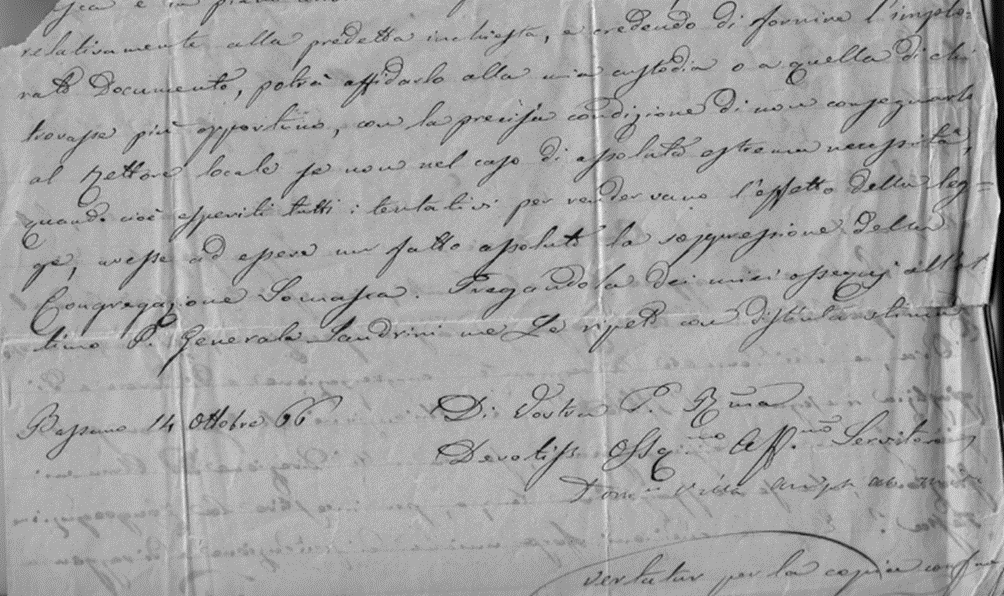 relativamente alla predetta inchiesta, e credendo di fornire l'implo=
rato Documento, potrà affidarlo alla mia custodia o a quella di chi
trovasse più opportuno, con la precisa condizione di non consegnarlo
al Rettore locale se non nel caso di assoluta estrema necessità,
quando cioè esperiti tutti i tentativi per render vano l'effetto della leg=
ge, avesse ad essere un fatto assoluto la soppressione della
Congregazione Somasca. Pregandola dei miei ossequj all'
timo P. Generale Sandrini me Le ripeto con distinta stima
Bassano 14 Ottobre 66
Di Vostra P. Rma
Devotiss. Ossq.mo Aff.mo Servitore
vertatur per la copia